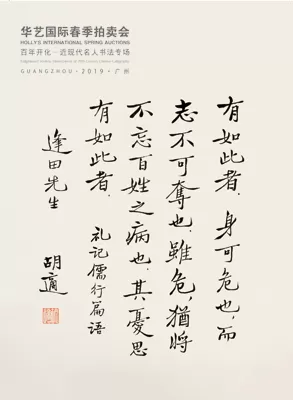 华艺国际春季拍卖会
HOLLY'S INTERNATIONAL SPRING AUCTIONS
百年开化—近现代名人书法专场
GUANGZHOU · 2019 · 广州
有如此者.身可危也,而
志不可奪也.雖危,猶將
不忘百姓之病也.其憂思
有如此者. 礼记儒行篇语
逢田先生
胡適